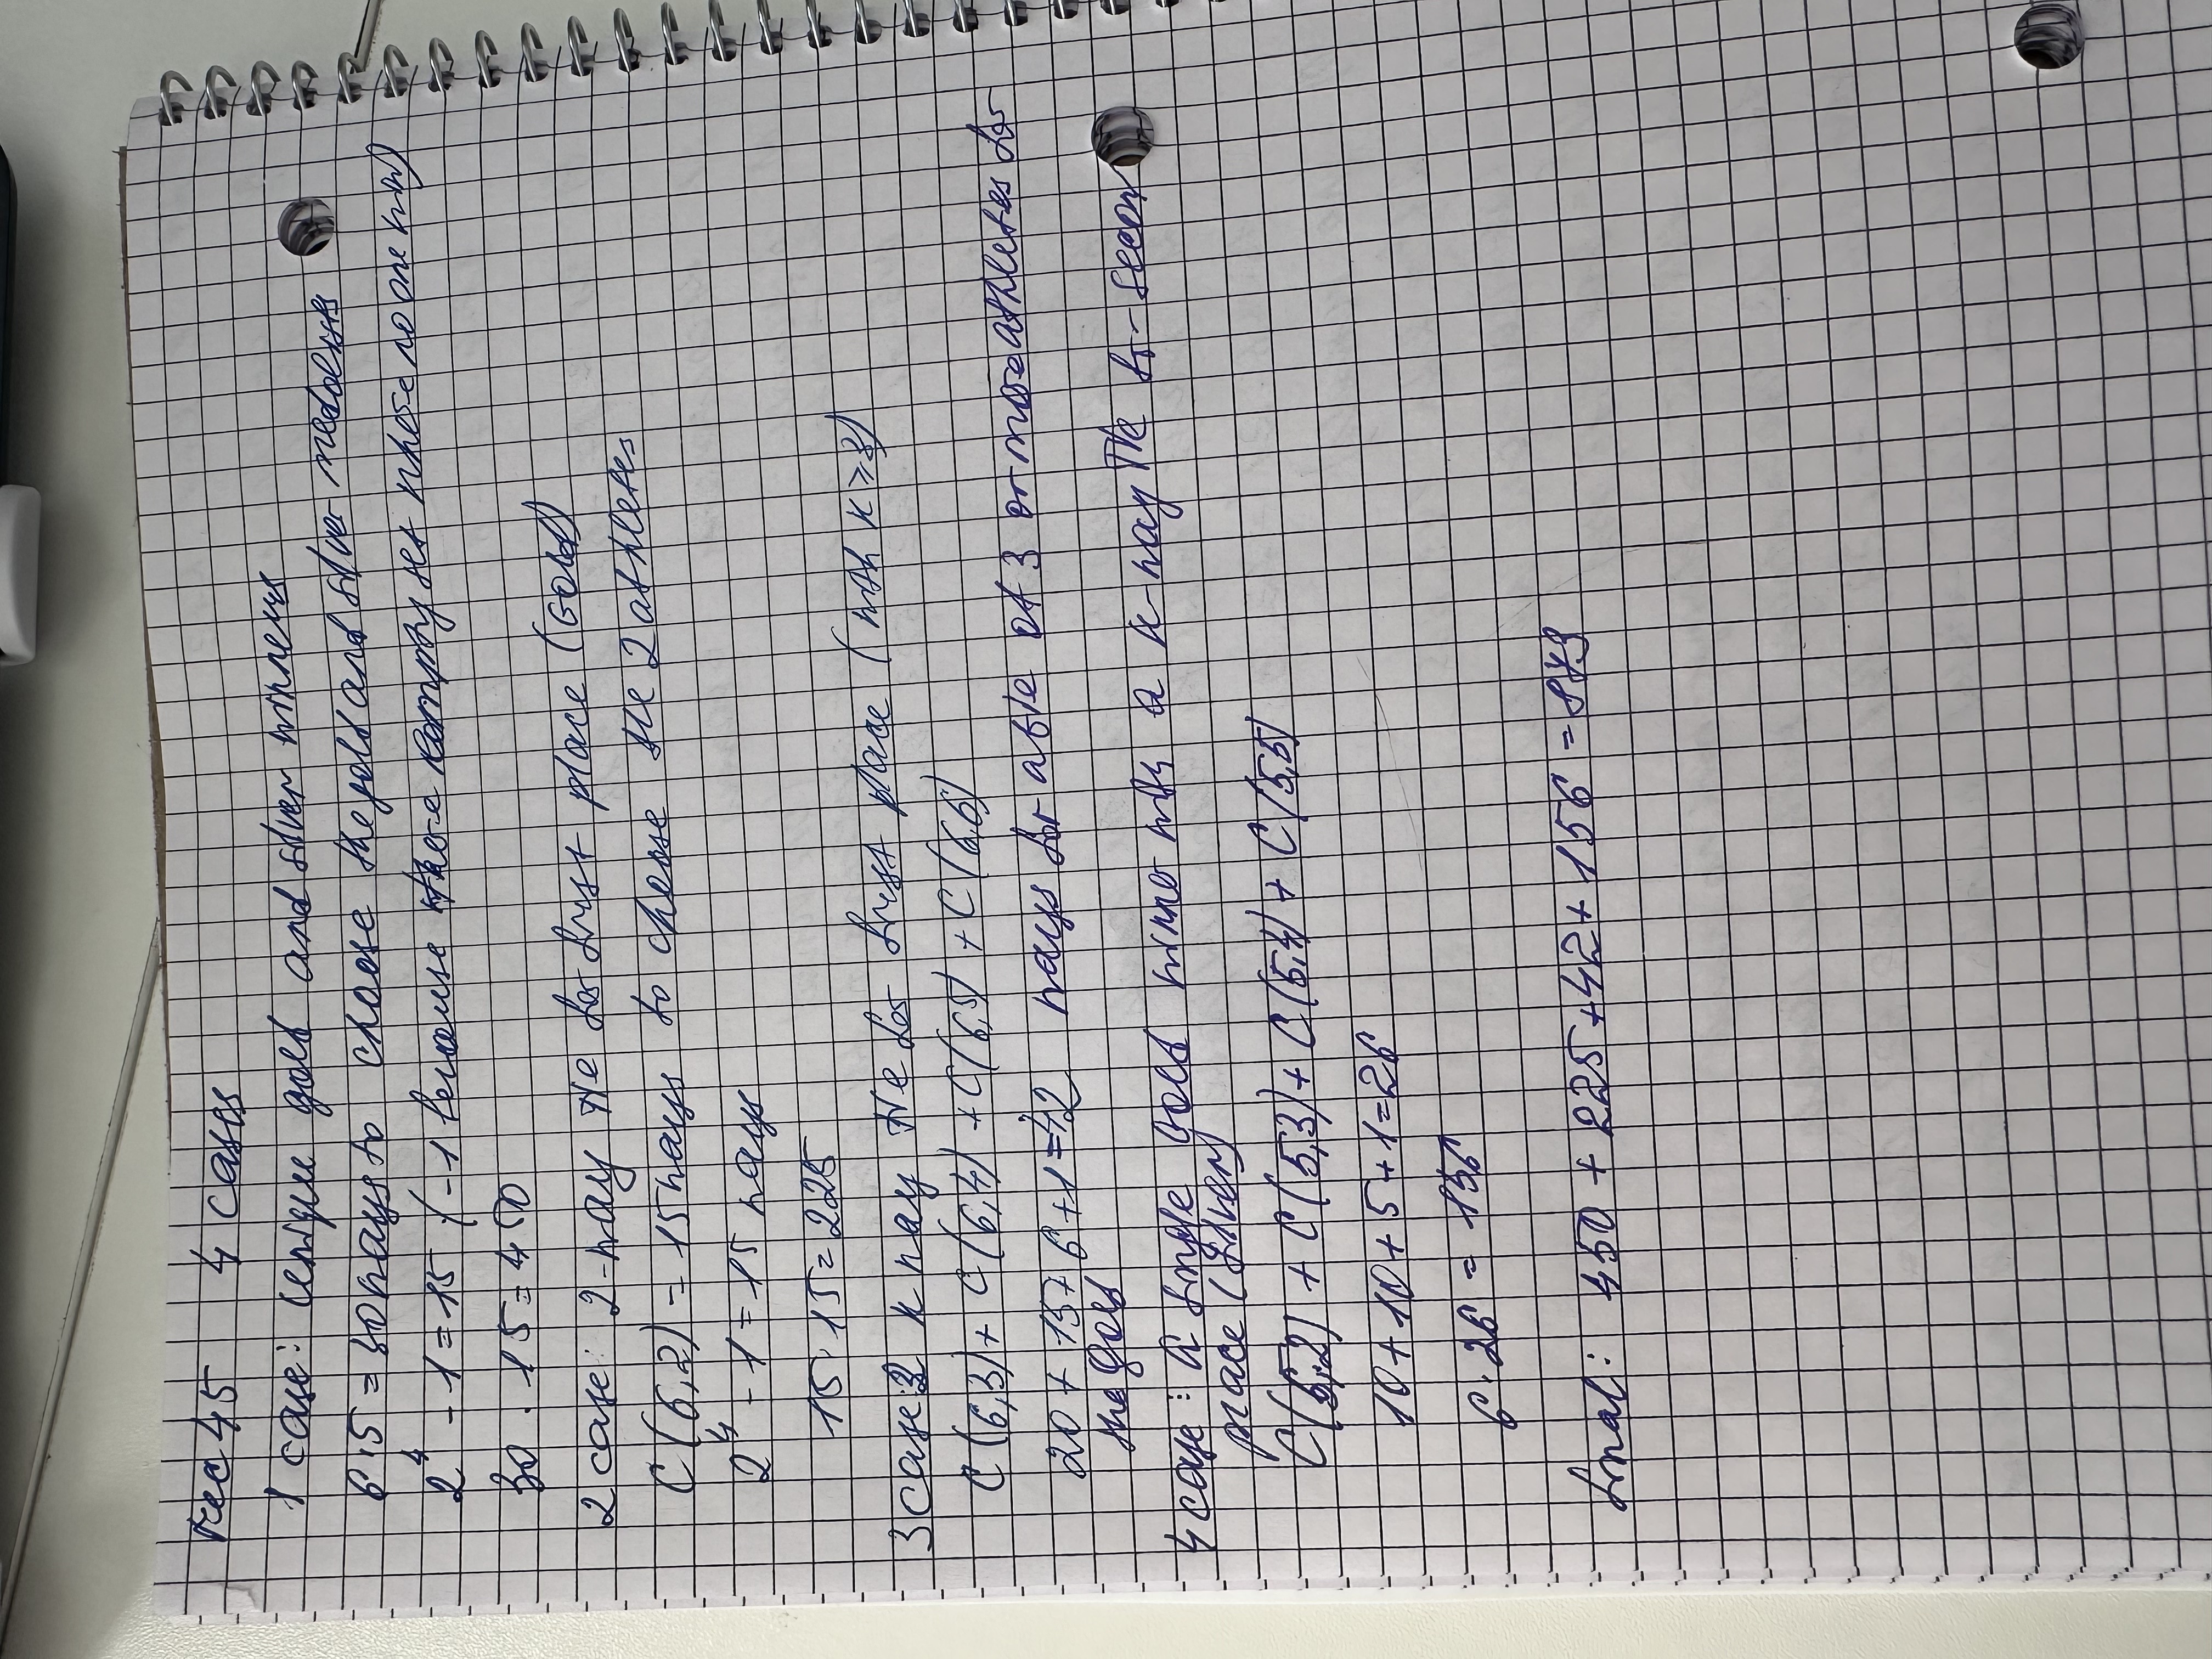 45 4 cases
1 case: unique gold and silver winners
6·5 = 30 ways to choose the gold and silver medalists
2⁴ - 1 = 15 (-1 because there empty set where no one win)
30 · 15 = 450
2 case: 2-way tie for first place (Gold)
C(6,2) = 15 ways to choose the 2 athletes
2⁴ - 1 = 15 ways
15·15 = 225
3 case: k way tie for first place (with k ≥ 3)
C(6,3) + C(6,4) + C(6,5) + C(6,6)
20 + 15 + 6 + 1 = 42 ways for a tie of 3 or more athletes for
the gold
4 case: a single gold winner with a k-way tie for secon
place (silver)
C(5,2) + C(5,3) + C(5,4) + C(5,5)
10 + 10 + 5 + 1 = 26
6 · 26 = 156
final: 450 + 225 + 42 + 156 = 873